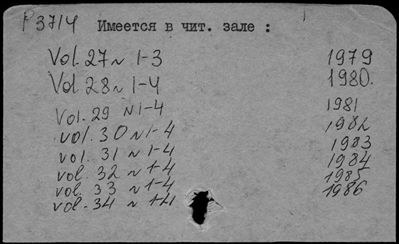 P 3714 Имеется в чит. зале :
Vol. 27 N 1-3 1979
Vol 28 N 1-4 1980.
Vol. 29 N 1-4 1981
vol. 30 N 1-4 1982
vol. 31 N 1-4 1983
vol. 32 N 1-4 1984
vol. 33 N 1-4 1985
vol. 34 N 1-4 1986